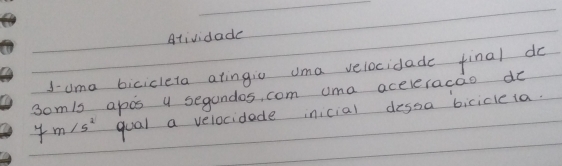 Atividade
1-uma bicicleta atingiu uma velocidade final de
30m/s após 4 segundos, com uma aceleração de
7m/s² qual a velocidade inicial dessa bicicleta.